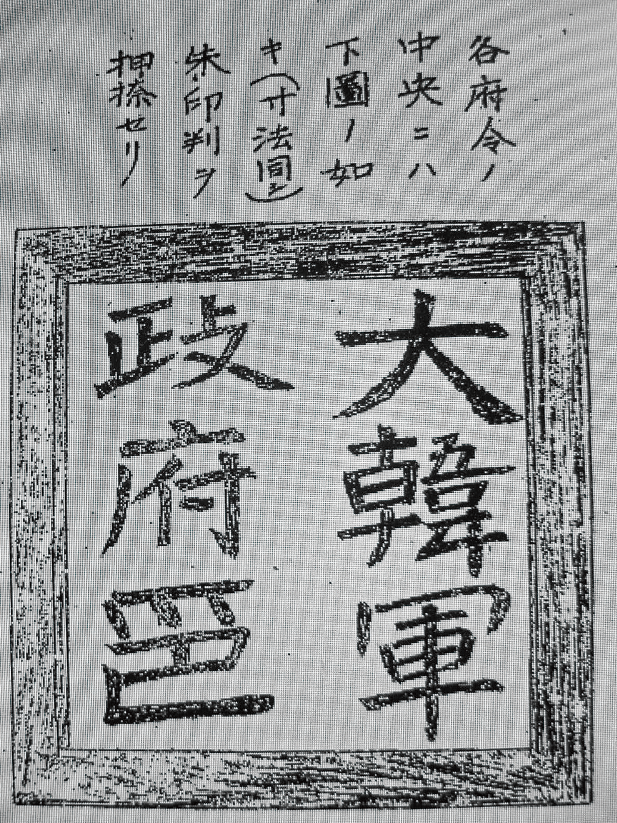 各府令ノ
中央ニハ
下圖ノ如
キ(寸法同シ)
朱印判ヲ
押捺セリ
大韓軍
政府印